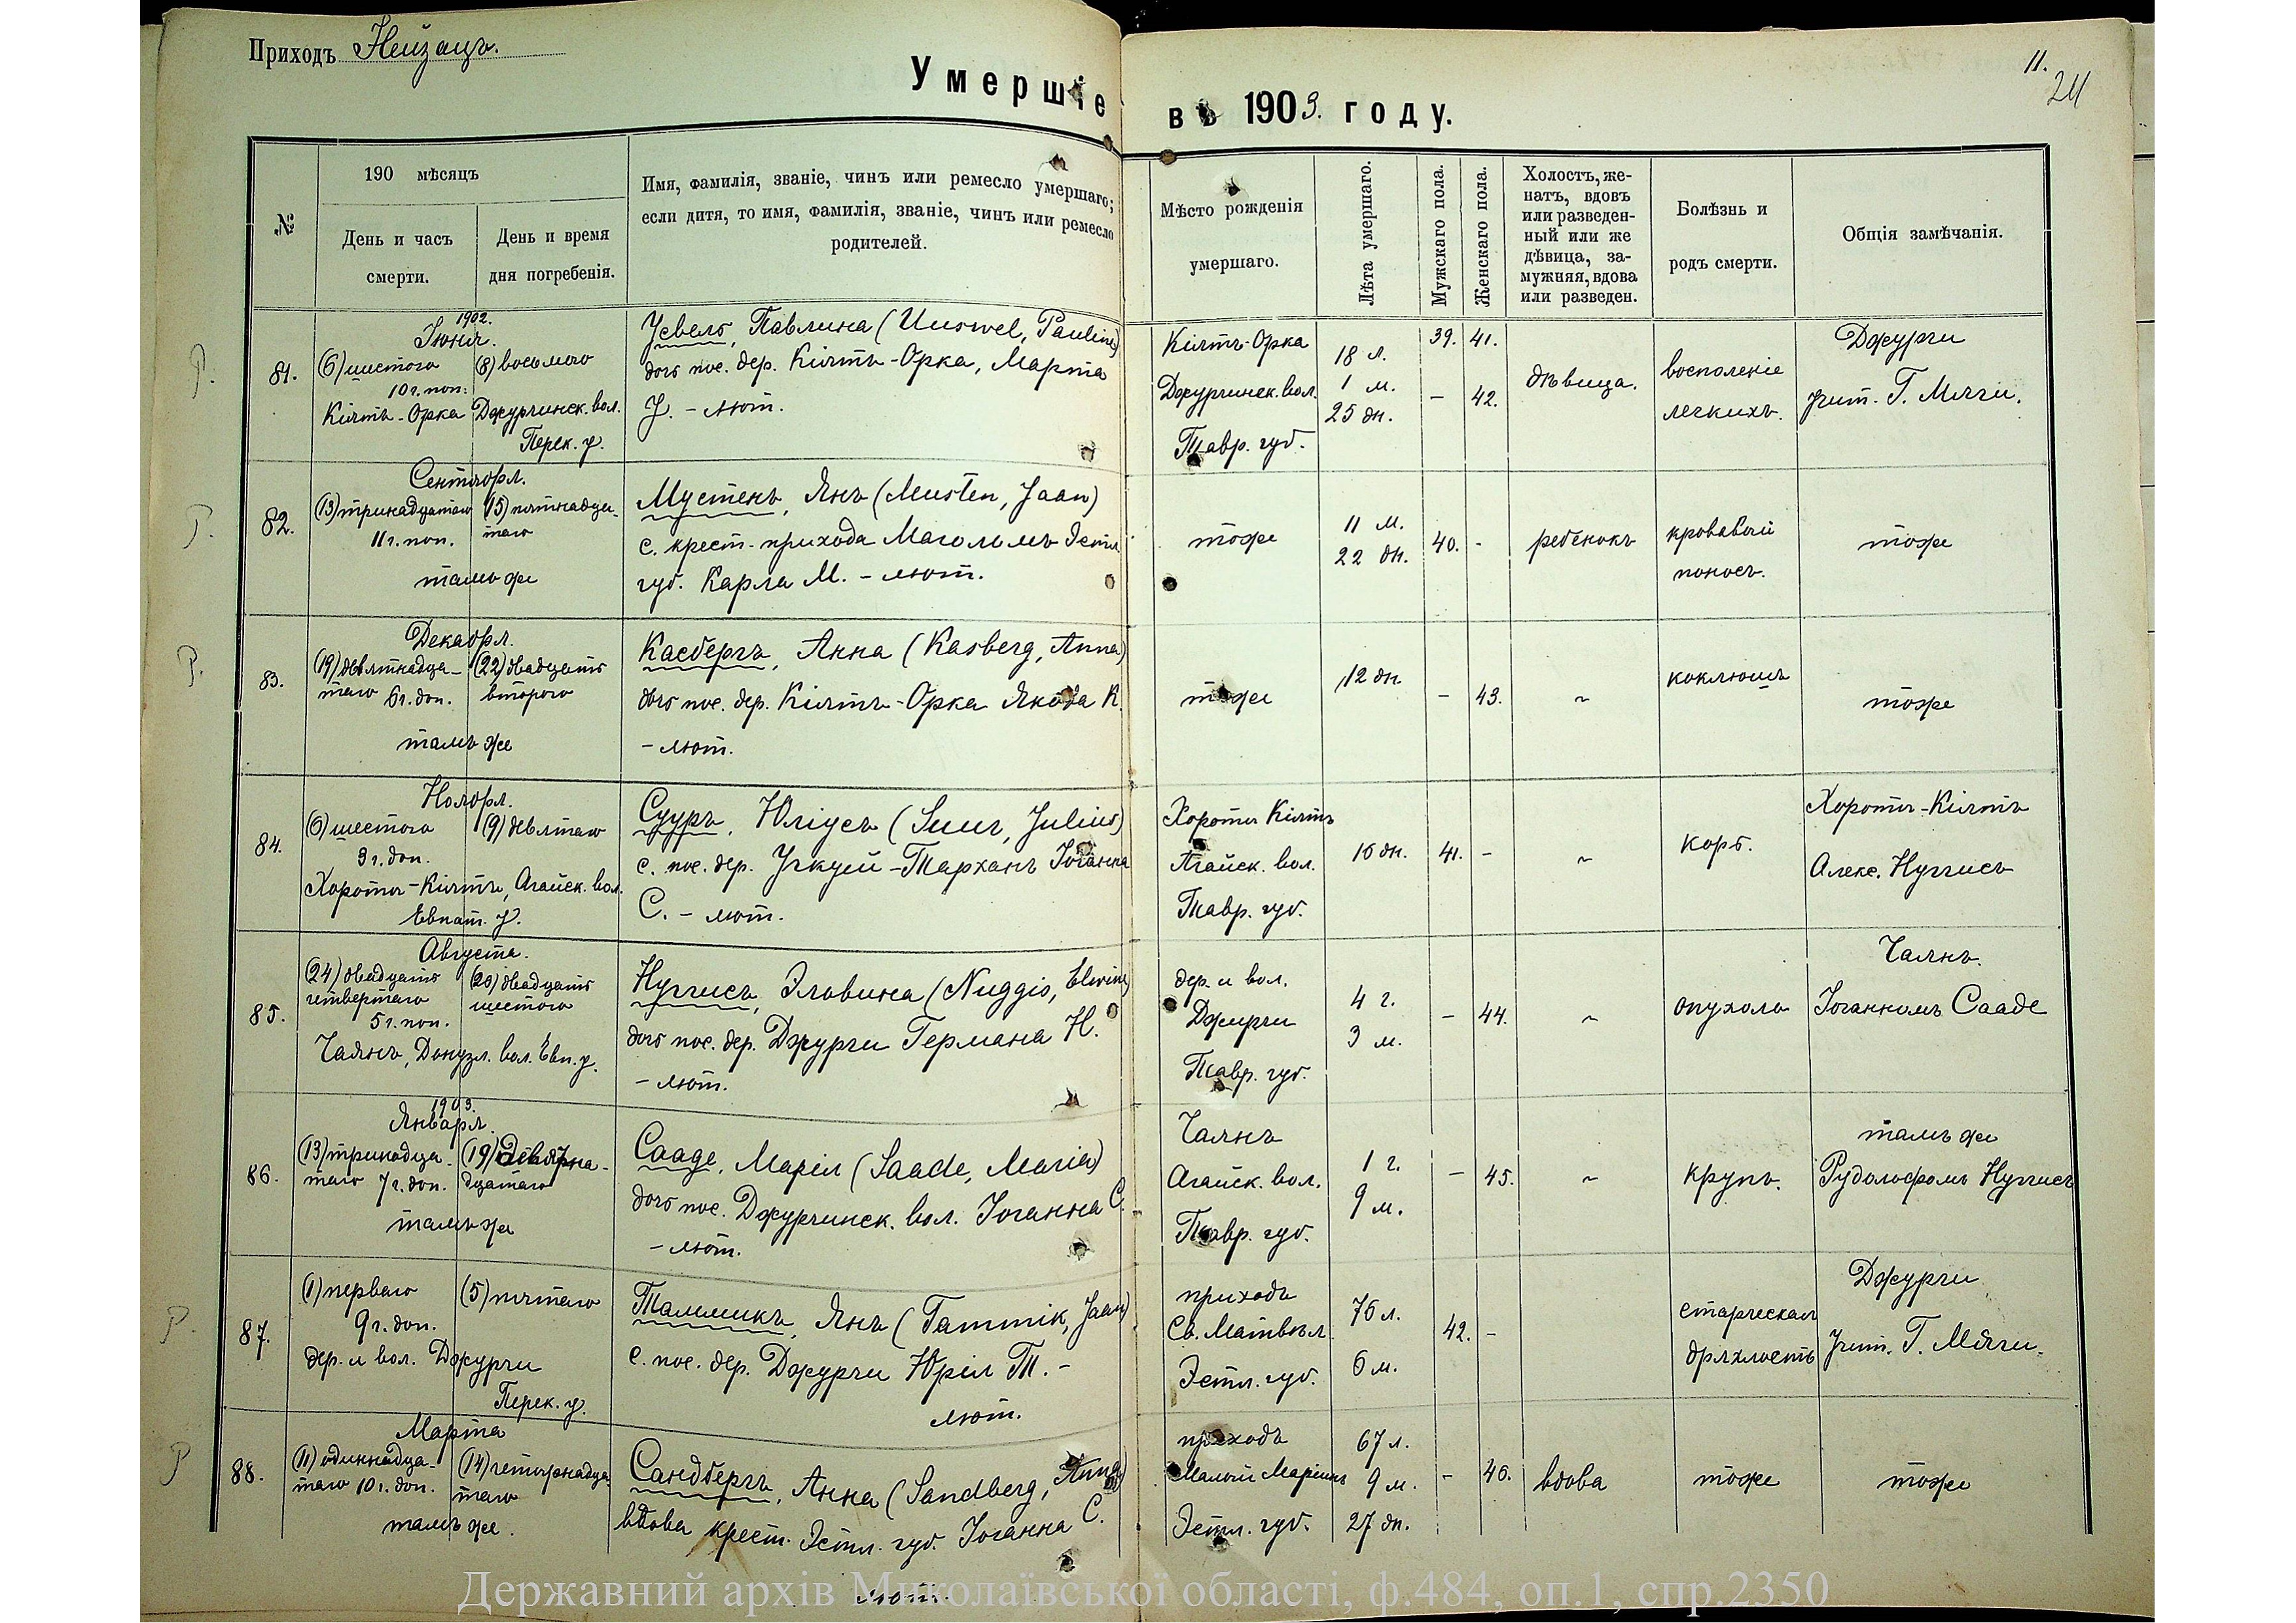 Приходъ Нейзацъ.
11.
Умершіе
въ 1903. году.
№
190 мѣсяцъ
День и часъ
смерти.
День и время
дня погребенія.
Имя, фамилія, званіе, чинъ или ремесло умершаго;
если дитя, то имя, фамилія, званіе, чинъ или ремесло
родителей.
Мѣсто рожденія
умершаго.
Лѣта умершаго.
Мужскаго пола.
Женскаго пола.
Холостъ, же-
натъ, вдовъ
или разведен-
ный или же
дѣвица, за-
мужняя, вдова
или разведен.
Болѣзнь и
родъ смерти.
Общія замѣчанія.
81.
1902.
Іюня.
(6) шестого
10 г. поп.
(8) восьмого
Кіятъ-Орка Джурчинск. вол.
Перек. у.
Усвель, Павлина (Uuswel, Pauline)
дочь пос. дер. Кіятъ-Орка, Марта
У. - лют.
Кіятъ-Орка
Джурчинск. вол.
Тавр. губ.
18 л.
1 м.
25 дн.
39.
41.
-
42.
дѣвица.
восполеніе
легкихъ.
Джурчи
Учит. Г. Мяги.
82.
Сентября.
(13) тринадцатаго
11 г. поп.
(15) пятнадца-
таго
тамъ же
Мустенъ, Янъ (Musten, Jaan)
с. крест. прихода Магольмъ Эстл.
губ. Карла М. - лют.
тоже
11 м.
22 дн.
40.
-
ребенокъ
кровавый
поносъ.
тоже
83.
Декабря.
(19) девятнадца-
таго 6 г. доп.
(22) двадцать
второго
тамъ же
Касбергъ, Анна (Kasberg, Anna)
дочь пос. дер. Кіятъ-Орка Якоба К.
- лют.
тоже
12 дн
-
43.
~
коклюшъ
тоже
84.
Ноября.
(6) шестого
3 г. доп.
(9) девятаго
Хороты-Кіятъ, Агайск. вол.
Евпат. у.
Сууръ, Юліусъ (Suur, Julius)
с. пос. дер. Учкуй-Тарханъ Іоганна
С. - лют.
Хороты Кіятъ
Агайск. вол.
Тавр. губ.
16 дн.
41.
-
~
корь.
Хороты-Кіятъ
Алекс. Нуггисъ
85.
Августа.
(24) двадцать
четвертаго
5 г. поп.
(26) двадцать
шестого
Чаянъ, Донузл. вол. Евп. у.
Нуггисъ, Эльвина (Nuggis, Elwine)
дочь пос. дер. Джурчи Германа Н.
- лют.
дер. и вол.
Джурчи
Тавр. губ.
4 г.
3 м.
-
44.
~
опухоль
Чаянъ.
Іоганномъ Сааде
86.
1903.
Января.
(13) тринадца-
таго 7 г. доп.
(19) Девятна-
дцатаго
тамъ же
Сааде, Марія (Saade, Maria)
дочь пос. Джурчинск. вол. Іоганна С.
- лют.
Чаянъ
Агайск. вол.
Тавр. губ.
1 г.
9 м.
-
45.
~
крупъ.
тамъ же
Рудольфомъ Нуггисъ
87.
(1) перваго
9 г. доп.
(5) пятаго
дер. и вол. Джурчи
Перек. у.
Таммикъ, Янъ (Tammik, Jaan)
с. пос. дер. Джурчи Юрія Т. -
лют.
приходъ
Св. Матвѣя
Эстл. губ.
76 л.
6 м.
42.
-
старческая
дряхлость
Джурчи
Учит. Г. Мяги.
88.
Марта
(11) одиннадца-
таго 10 г. доп.
(14) четырнадца-
таго
тамъ же.
Сандбергъ, Анна (Sandberg, Anna)
вдова крест. Эстл. губ. Іоганна С.
лют.
приходъ
Малый Маріинъ
Эстл. губ.
67 л.
9 м.
27 дн.
-
46.
вдова
тоже
тоже
Державний архів Миколаївської області, ф.484, оп.1, спр.2350